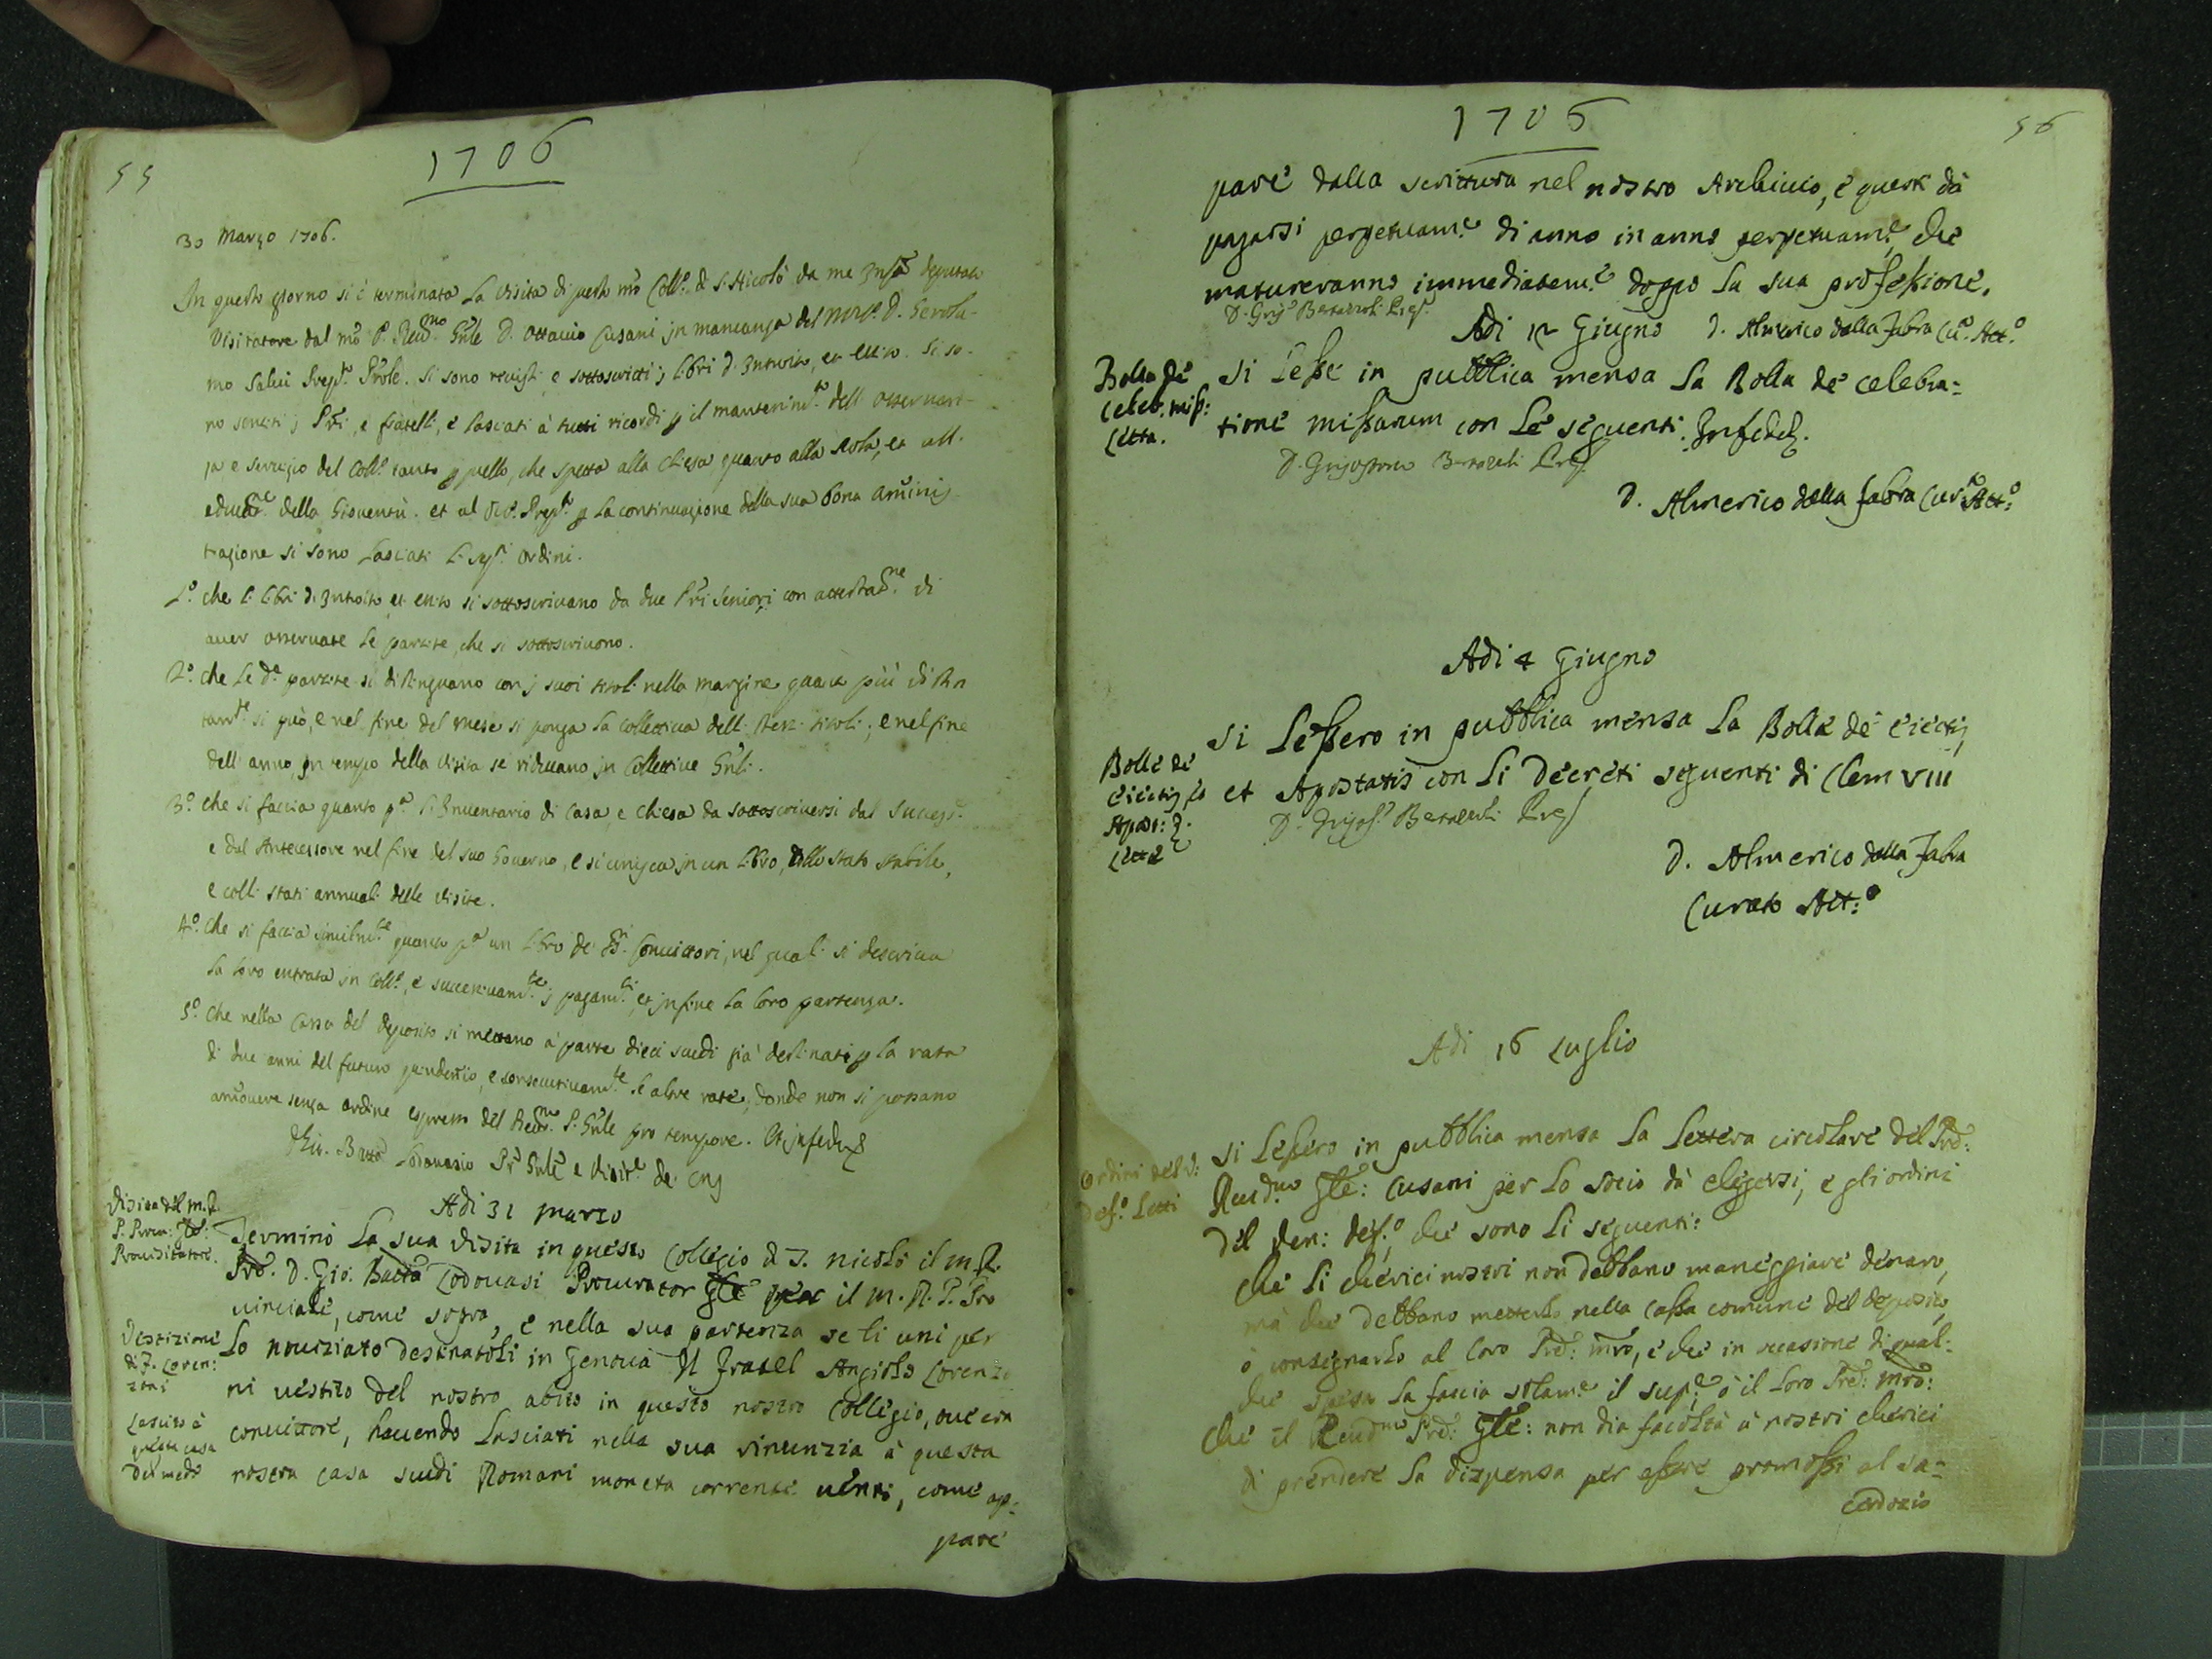 55
1706
30 Marzo 1706.
In questo giorno si è terminata la visita di questo nro Coll.o di S. Nicolò da me infra deputato
Visitatore dal nro P. Reu.mo Gnle D. Ottauio Cusani in mancanza del M.R.P. D. Gerola-
mo Salui Prep.to Prole. Si sono reuisti e sottoscritti i libri d'Introito, et exito. Si so-
no sentiti i Pri, e fratelli, e lasciati à tutti ricordi p il mantenim.to dell' osseruan-
za e seruizio del Coll.o tanto p quello, che spetta alla Chiesa quanto alla Scola, et all'
educat.ne della Giouentù. et al P. Prep.to p la continuazione della sua bona aminis-
trazione si sono lasciati li seg.ti ordini.
1.o che li libri d'Introito et exito si sottoscriuano da due Pri Seniori con attestat.ne di
auer osseruate le partite, che si sottoscriuono.
2.o che le d.e partite si distinguano con i suoi titoli nella margine quanto più distin
tam.te si può, e nel fine del mese si ponga la collettiua delli stessi titoli; e nel fine
dell' anno, in tempo della visita se riducano in Collettiue Gnli.
3.o che si faccia quanto p.a l'Inuentario di Casa, e Chiesa da sottoscriuersi dal Success.re
e dal Antecessore nel fine del suo Gouerno, e si unisca in un libro, collo stato stabile,
e colli stati annuali delle visite.
4.o che si faccia similm.te quanto p.a un libro de SS. Conuittori, nel quale si descriua
la loro entrata in Coll.o, e successiuam.te i pagam.ti, et infine la loro partenza.
5.o che nella Cassa del deposito si mettano à parte dieci scudi già destinati p la rata
di due anni del futuro quindennio, e consecutiuam.te le altre rate, donde non si possano
amouere senza ordine espresso del Reu.mo P. Gnle pro tempore. Et in fede
Gio. Batta Lodouasio Pr. Gnle e Visit.e de
Visita del M.R.
P. Procu: Gle:
Prouisitatore.
Adi 31 marzo
Terminò la sua visita in questo Collegio di S. nicolò il M.R.
Prd. D. Gio: Batta Lodouasi Procurator Gle per il M.R.P. Pro
uinciale, come sopra, e nella sua partenza se li unì per
Vestizione
di F. Loren:
zini
lo nouiziato destinatoli in Genoua Il Fratel Angiolo Lorenzi
ni uestito del nostro abito in questo nostro Collegio, oue era
Lascito à
questa casa
del med.o
conuittore, hauendo lasciati nella sua rinunzia à questa
nostra casa scudi Romani moneta corrente uenti, come ap=
pare
1706
56
pare dalla scrittura nel nostro Archiuio, e questi dà
pagarsi perpetuam.e di anno in anno perpetuam.e, che
matureranno immediatam.e doppo la sua professione.
D. Grisos. Bertazoli Prep.
Adi 12 Giugno D. Almerico dalla Fabra Cu.o Att.o
Bolla de
celeb. miss:
letta.
Si lesse in pubblica mensa la Bolla de celebra=
tione missarum con le seguenti. In fede
D. Grisostomo Bertazoli Prep.
D. Almerico dalla fabra Cur.o Att:o
Adi 4 Giugno
Bolle de
eiectis, et
Apost:
lette
Si lessero in pubblica mensa la Bolla de eiectis,
et Apostatis con li decreti seguenti di Clem VIII
D. Grisos.o Bertazoli Prep
D. Almerico dalla Fabra
Curato Att:o
Adi 16 Luglio
Ordini del V:
Def.o Letti
Si lessero in pubblica mensa la lettera circolare del Prd:
Reud.mo Gle: Cusani per lo socio dà elegersi, e gli ordini
del Ven: def.o, che sono li seguenti:
che li chierici nostri non debbano maneggiare denaro,
mà che debbano metterlo nella cassa comune del deposito,
ò consegnarlo al loro Prd: mro, e che in occasione di qual=
che spesa la faccia solam.e il sup.e ò il loro Prd: mro:
Che il Reud.mo Prd: Gle: non dia facoltà à nostri chierici
di prendere la dispensa per essere promossi al sa=
cerdozio